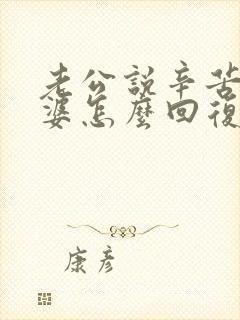 老公說辛苦
婆怎麼回復
康彥